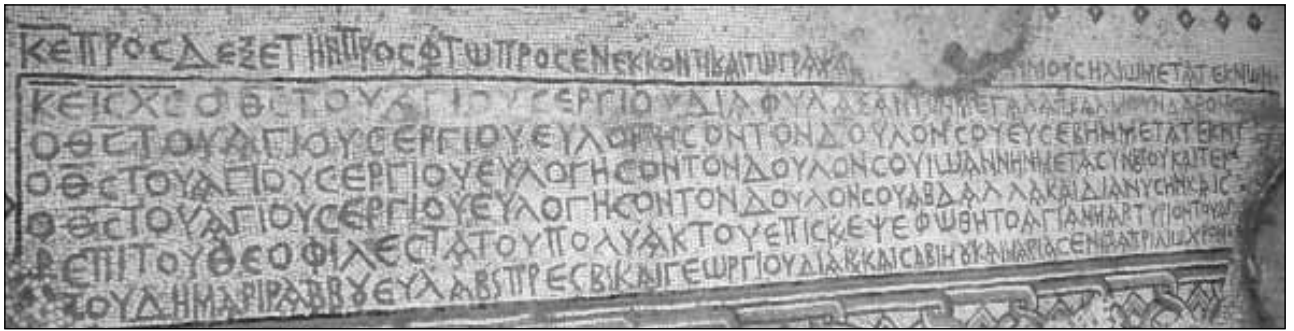 ΚΕΠΡΟCΔΕΞΕΤΗΝΠΡΟCΦΤΩΠΡΟCΕΝΕΚΚΟΝΤΗΚΑΙΤΩΓΡΑΨΑ ΥΜΟΥCΗΛΙΩΜΕΤΑΤΕΚΝΩΝ
ΚΕΙCΧCΟΘCΤΟΥΑΓΙΟΥCΕΡΓΙΟΥΔΙΑΦΥΛΑΞΑΝΤΟΝΜΕΓΑΛΑ
ΟΘCΤΟΥΑΓΙΟΥCΕΡΓΙΟΥΕΥΛΟΓΗCΟΝΤΟΝΔΟΥΛΟΝCΟΥΕΥCΕΒΗΝΜΕΤΑΤΕΚΝ
ΟΘCΤΟΥΑΓΙΟΥCΕΡΓΙΟΥΕΥΛΟΓΗCΟΝΤΟΝΔΟΥΛΟΝCΟΥΙΩΑΝΝΗΝΜΕΤΑCΥΝΒΙΟΥΚΑΙΤΕΚ
ΟΘCΤΟΥΑΓΙΟΥCΕΡΓΙΟΥΕΥΛΟΓΗCΟΝΤΟΝΔΟΥΛΟΝCΟΥΑΒΔΑΛΛΑΚΑΙΔΙΑΝΥCΗΝΚΑΙC
ΕΠΙΤΟΥΘΕΟΦΙΛΕCΤΑΤΟΥΠΟΛΥΑΚΤΟΥΕΠΙCΚΕΨΕΦΩΘΗΤΟΑΓΙΑΝΜΑΡΤΥΡΙΟΝΤΟΥΑΓ
ΟΥΔΗΜΑΡΙΡΑΒΒȣΕΥΛΑΒSΠΡΕCΒSΚΑΙΓΕΩΡΓΙΟΥΔΙΑΚSΚΑΙCΑΒΙΝȣΚΑΙΜΑΡΙΑCΕΝΜ